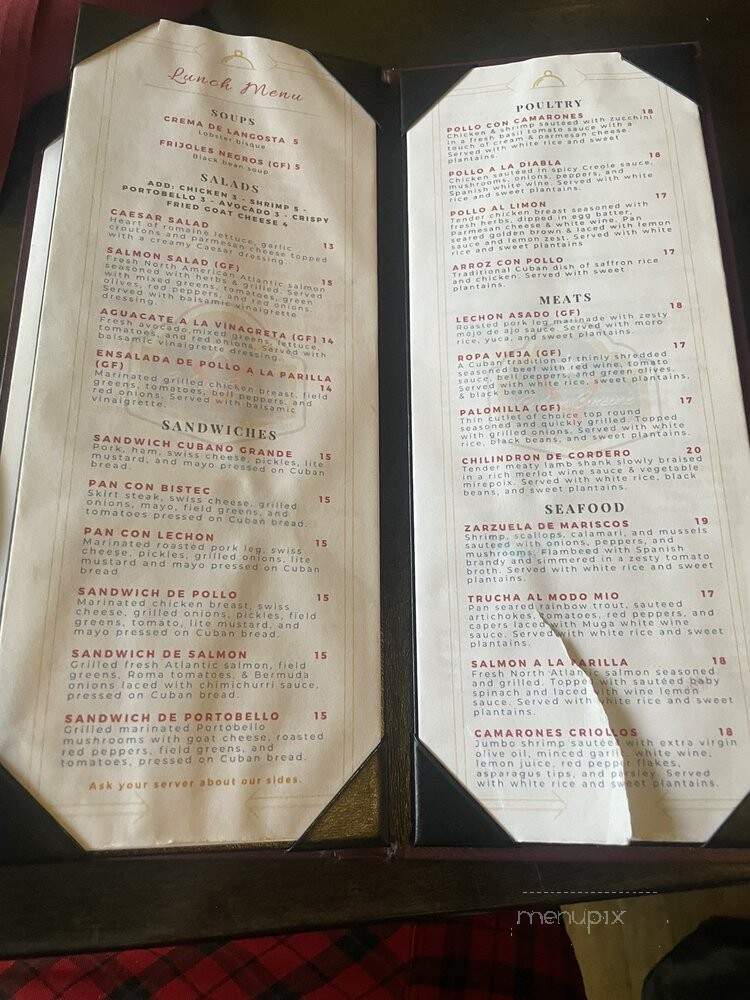 Lunch Menu
SOUPS
CREMA DE LANGOSTA 5
Lobster bisque
FRIJOLES NEGROS (GF) 5
Black bean soup
SALADS
ADD: CHICKEN 3 - SHRIMP 5 -
PORTOBELLO 3 - AVOCADO 3 - CRISPY
FRIED GOAT CHEESE 4
CAESAR SALAD 13
Heart of romaine lettuce, garlic
croutons and parmesan cheese topped
with a creamy Caesar dressing.
SALMON SALAD (GF)
Fresh North American Atlantic salmon
seasoned with herbs & grilled. Served
with mixed greens, tomatoes, green
olives, red peppers, and red onions.
Served with balsamic vinaigrette
dressing.
AGUACATE A LA VINAGRETA (GF) 14
Fresh avocado, mixed greens, lettuce,
tomatoes, and red onions. Served with
balsamic vinaigrette dressing.
ENSALADA DE POLLO A LA PARILLA
(GF) 14
Marinated grilled chicken breast, field
greens, tomatoes, bell peppers, and
red onions. Served with balsamic
vinaigrette.
SANDWICHES
SANDWICH CUBANO GRANDE 15
Pork, ham, swiss cheese, pickles, lite
mustard, and mayo pressed on Cuban
bread.
PAN CON BISTEC 15
Skirt steak, swiss cheese, grilled
onions, mayo, field greens, and
tomatoes pressed on Cuban bread.
PAN CON LECHON 15
Marinated roasted pork leg, swiss
cheese, pickles, grilled onions, lite
mustard and mayo pressed on Cuban
bread
SANDWICH DE POLLO 15
Marinated chicken breast, swiss
cheese, grilled onions, pickles, field
greens, tomato, lite mustard, and
mayo pressed on Cuban bread.
SANDWICH DE SALMON 15
Grilled fresh Atlantic salmon, field
greens, Roma tomatoes, & Bermuda
onions laced with chimichurri sauce,
pressed on Cuban bread.
SANDWICH DE PORTOBELLO 15
Grilled marinated Portobello
mushrooms with goat cheese, roasted
red peppers, field greens, and
tomatoes, pressed on Cuban bread.
Ask your server about our sides.
POULTRY
POLLO CON CAMARONES 18
Chicken & shrimp sautéed with zucchini
in a fresh basil tomato sauce with a
touch of cream & parmesan cheese.
Served with white rice and sweet
plantains.
POLLO A LA DIABLA 18
Chicken sautéed in spicy Creole sauce,
mushrooms, onions, peppers, and
Spanish white wine. Served with white
rice and sweet plantains.
POLLO AL LIMON 17
Tender chicken breast seasoned with
fresh herbs, dipped in egg batter,
Parmesan cheese & white wine. Pan
seared golden brown & laced with lemon
sauce and lemon zest. Served with white
rice and sweet plantains
ARROZ CON POLLO 17
Traditional Cuban dish of saffron rice
and chicken. Served with sweet
plantains.
MEATS
LECHON ASADO (GF) 18
Roasted pork leg marinade with zesty
mojo de ajo sauce. Served with moro
rice, yuca, and sweet plantains.
ROPA VIEJA (GF) 17
A Cuban tradition of thinly shredded
seasoned beef with red wine, tomato
sauce, bell peppers, and green olives.
Served with white rice, sweet plantains,
& black beans
PALOMILLA (GF) 17
Thin cutlet of choice top round
seasoned and quickly grilled. Topped
with grilled onions. Served with white
rice, black beans, and sweet plantains.
CHILINDRON DE CORDERO 20
Tender meaty lamb shank slowly braised
in a rich merlot wine sauce & vegetable
mirepoix. Served with white rice, black
beans, and sweet plantains.
SEAFOOD
ZARZUELA DE MARISCOS 19
Shrimp, scallops, calamari, and mussels
sautéed with onions, peppers, and
mushrooms. Flambeed with Spanish
brandy and simmered in a zesty tomato
broth. Served with white rice and sweet
plantains.
TRUCHA AL MODO MIO 17
Pan seared rainbow trout, sautéed
artichokes, tomatoes, red peppers, and
capers laced with Muga white wine
sauce. Served with white rice and sweet
plantains.
SALMON A LA PARILLA 18
Fresh North Atlantic salmon seasoned
and grilled. Topped with sautéed baby
spinach and laced with wine lemon
sauce. Served with white rice and sweet
plantains.
CAMARONES CRIOLLOS 18
Jumbo shrimp sauteed with extra virgin
olive oil, minced garlic, white wine,
lemon juice, red pepper flakes,
asparagus tips, and parsley. Served
with white rice and sweet plantains.
menupix